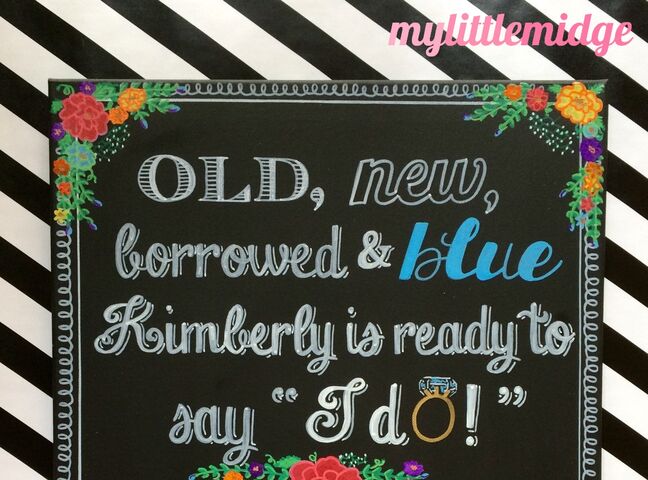 mylittlemidge
OLD, new,
borrowed & blue
Kimberly is ready to
say "I do!"